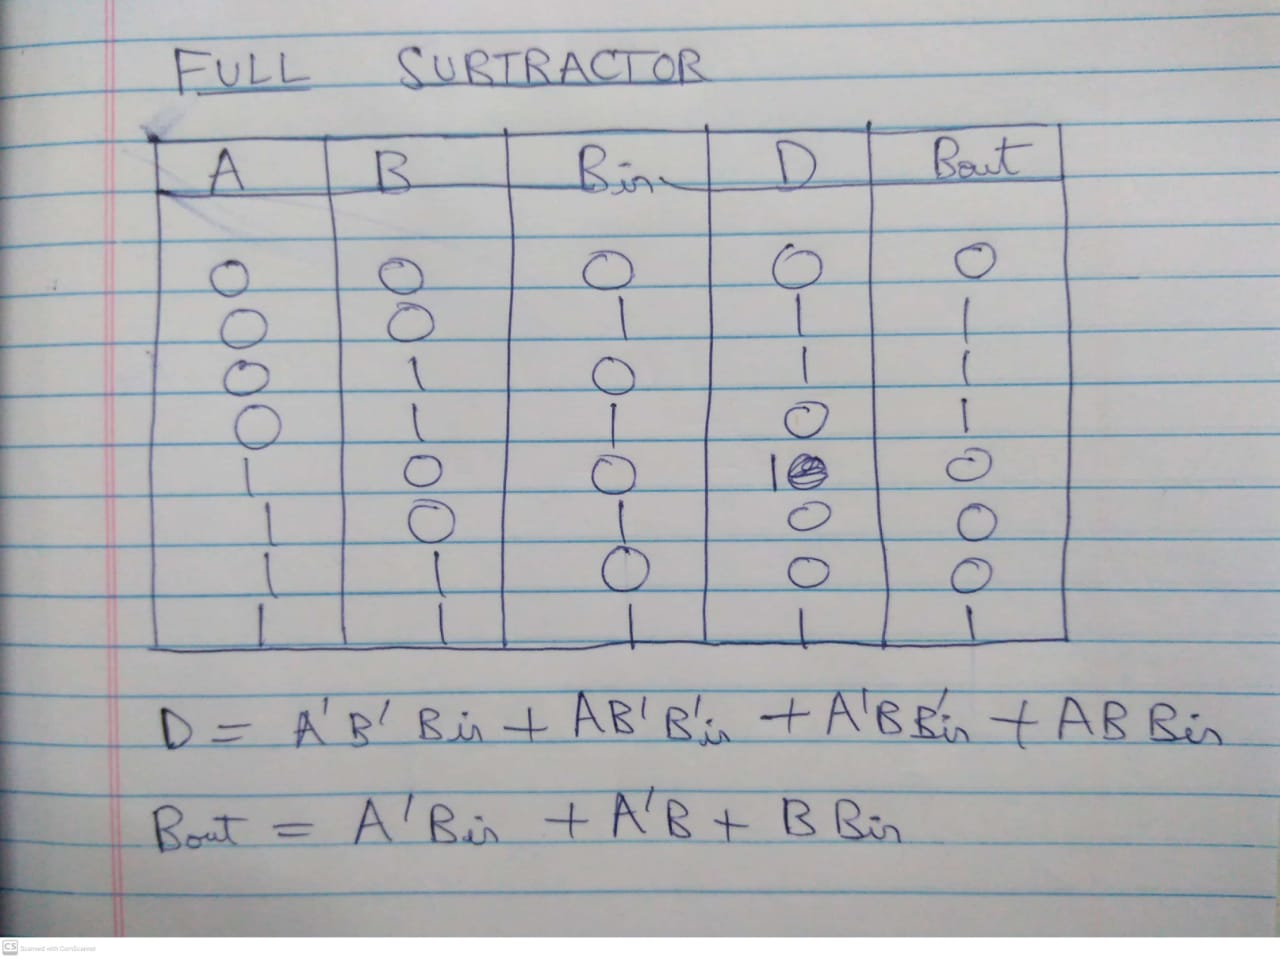 FULL SUBTRACTOR
A B Bin D Bout
0 0 0 0 0
0 0 1 1 1
0 1 0 1 1
0 1 1 0 1
1 0 0 1 0
1 0 1 0 0
1 1 0 0 0
1 1 1 1 1
D = A'B' Bin + AB'B'in + A'BB'in + AB Bin
Bout = A'Bin + A'B + B Bin
CS Scanned with CamScanner